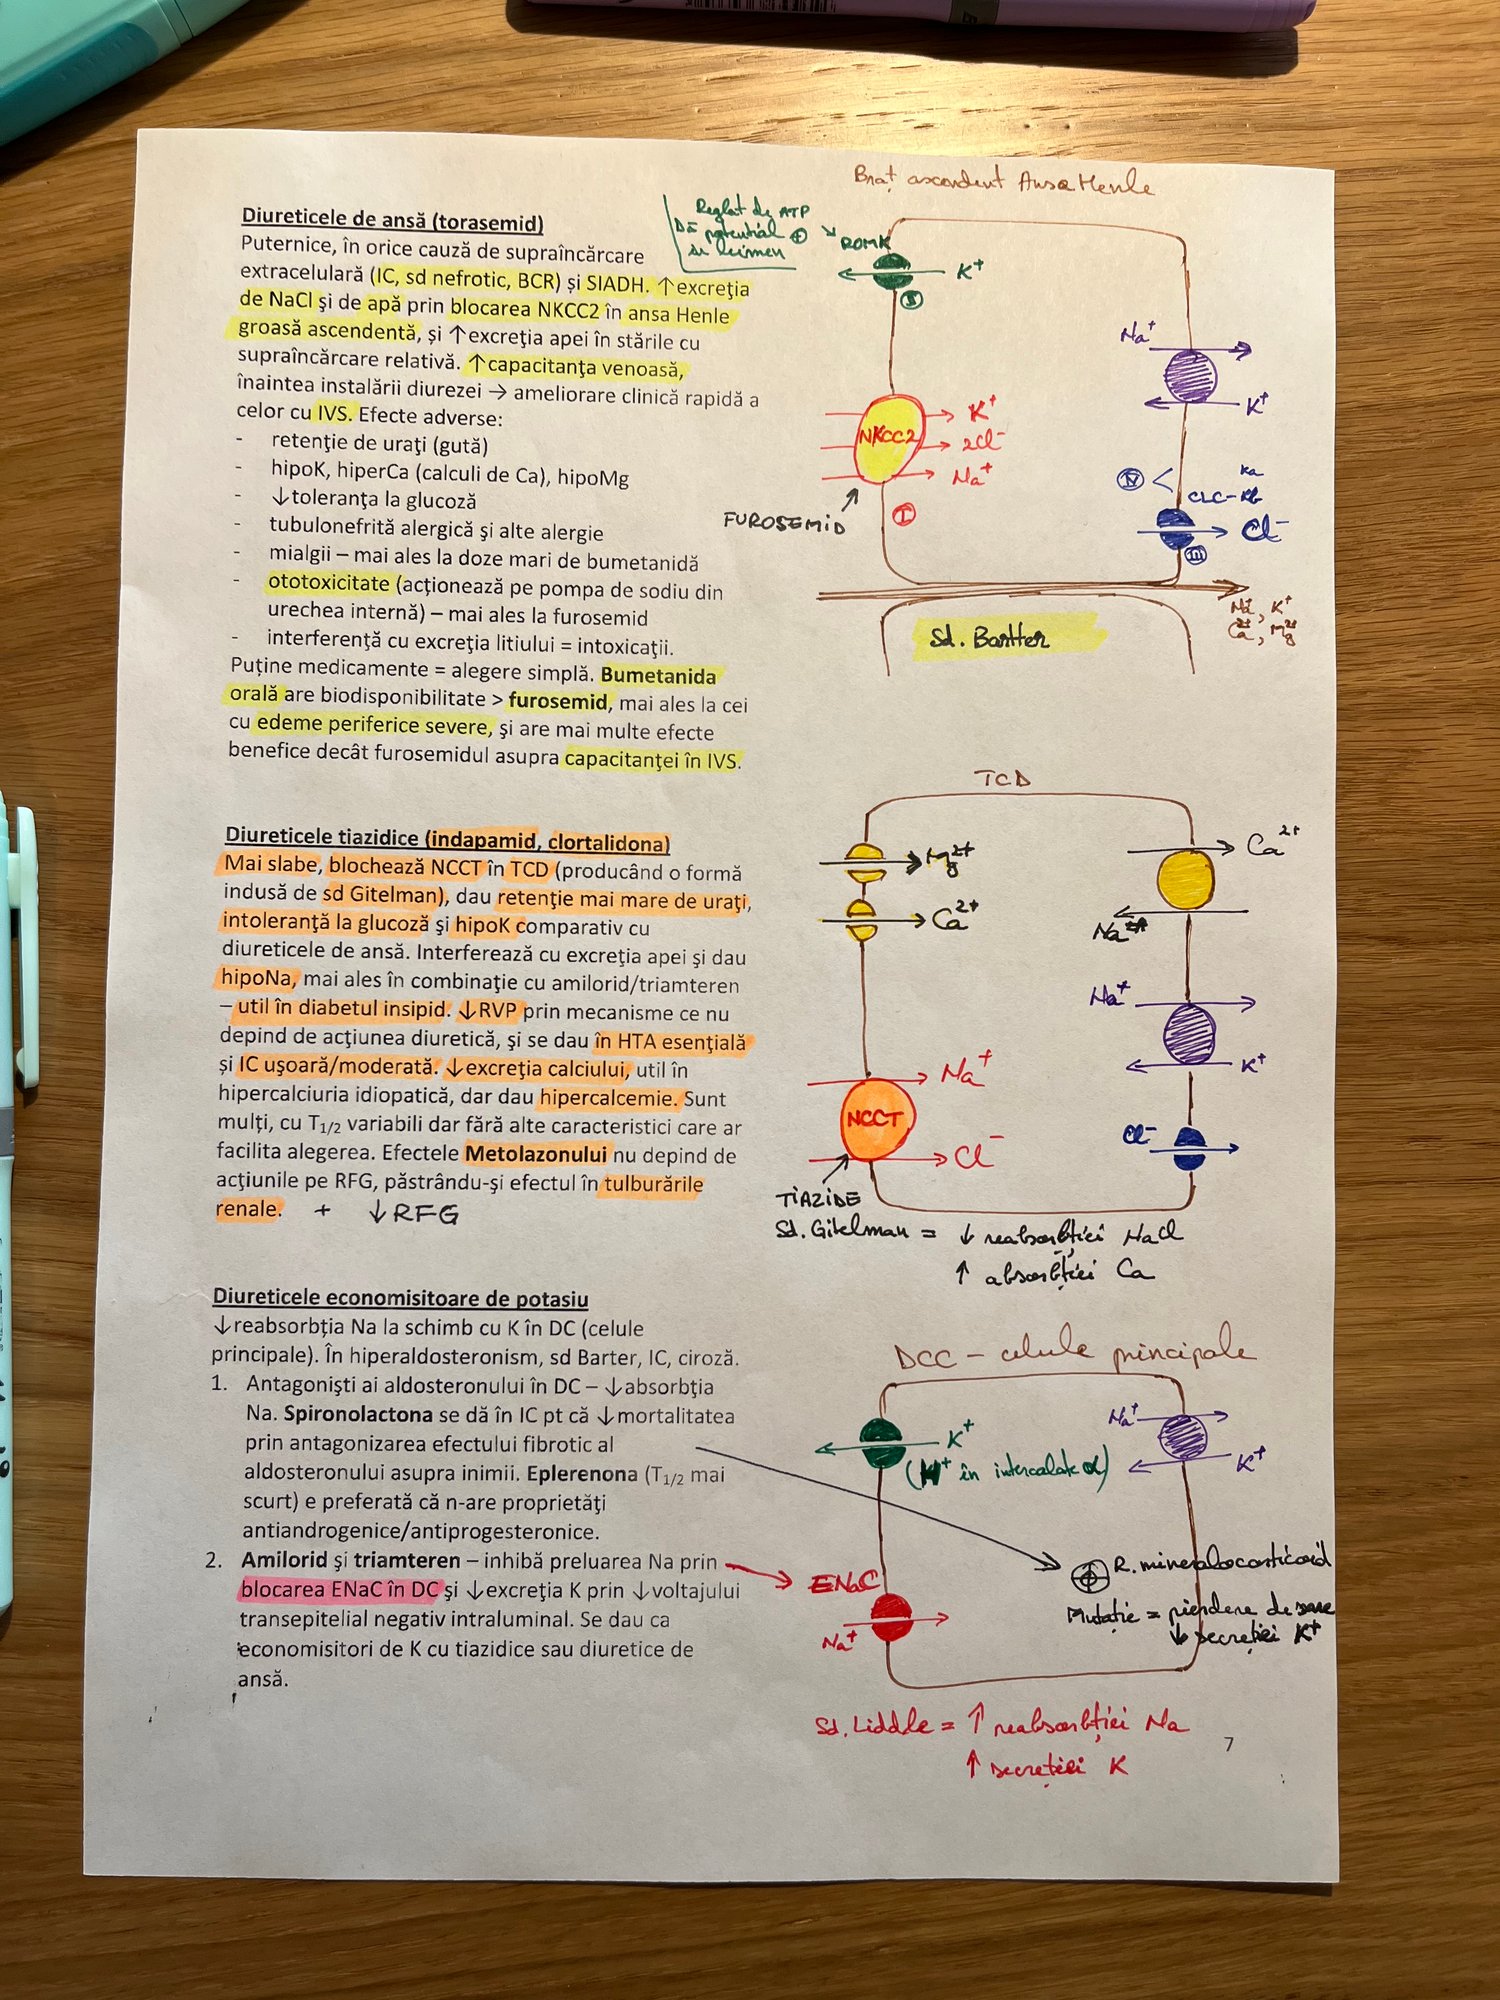 Diureticele de ansă (torasemid)
Puternice, în orice cauză de supraîncărcare
extracelulară (IC, sd nefrotic, BCR) şi SIADH. ↑excreţia
de NaCl şi de apă prin blocarea NKCC2 în ansa Henle
groasă ascendentă, și ↑excreţia apei în stările cu
supraîncărcare relativă. ↑capacitanţa venoasă,
înaintea instalării diurezei → ameliorare clinică rapidă a
celor cu IVS. Efecte adverse:
- retenţie de uraţi (gută)
- hipoK, hiperCa (calculi de Ca), hipoMg
- ↓toleranţa la glucoză
- tubulonefrită alergică şi alte alergie
- mialgii – mai ales la doze mari de bumetanidă
- ototoxicitate (acţionează pe pompa de sodiu din
urechea internă) – mai ales la furosemid
- interferenţă cu excreţia litiului = intoxicaţii.
Puţine medicamente = alegere simplă. Bumetanida
orală are biodisponibilitate > furosemid, mai ales la cei
cu edeme periferice severe, şi are mai multe efecte
benefice decât furosemidul asupra capacitanţei în IVS.
Braț ascendent Ansa Henle
Reglat de ATP
potențial ⊕
în lumen
ROMK
K+
II
Na+
K+
NKCC2
K+
2Cl-
Na+
FUROSEMID
I
IV <
Ka
CLC-Kb
Cl-
III
Na+, K+
Ca2+, Mg2+
Sd. Bartter
Diureticele tiazidice (indapamid, clortalidona)
Mai slabe, blochează NCCT în TCD (producând o formă
indusă de sd Gitelman), dau retenţie mai mare de uraţi,
intoleranţă la glucoză şi hipoK comparativ cu
diureticele de ansă. Interferează cu excreţia apei şi dau
hipoNa, mai ales în combinaţie cu amilorid/triamteren
– util în diabetul insipid. ↓RVP prin mecanisme ce nu
depind de acţiunea diuretică, şi se dau în HTA esenţială
şi IC uşoară/moderată. ↓excreţia calciului, util în
hipercalciuria idiopatică, dar dau hipercalcemie. Sunt
mulţi, cu T1/2 variabili dar fără alte caracteristici care ar
facilita alegerea. Efectele Metolazonului nu depind de
acţiunile pe RFG, păstrându-şi efectul în tulburările
renale. + ↓RFG
TCD
Mg2+
Ca2+
Ca2+
Na+
Na+
K+
Cl-
NCCT
Na+
Cl-
TIAZIDE
Sd. Gitelman = ↓ reabsorbției NaCl
↑ absorbției Ca
Diureticele economisitoare de potasiu
↓reabsorbția Na la schimb cu K în DC (celule
principale). În hiperaldosteronism, sd Barter, IC, ciroză.
1. Antagonişti ai aldosteronului în DC – ↓absorbţia
Na. Spironolactona se dă în IC pt că ↓mortalitatea
prin antagonizarea efectului fibrotic al
aldosteronului asupra inimii. Eplerenona (T1/2 mai
scurt) e preferată că n-are proprietăţi
antiandrogenice/antiprogesteronice.
2. Amilorid şi triamteren – inhibă preluarea Na prin
blocarea ENaC în DC şi ↓excreţia K prin ↓voltajului
transepitelial negativ intraluminal. Se dau ca
economisitori de K cu tiazidice sau diuretice de
ansă.
DCC – celule principale
K+
(H+ în intercalate α)
Na+
K+
ENaC
Na+
R. mineralocorticoid
Mutație = pierdere de sare
↓ secreției K+
Sd. Liddle = ↑ reabsorbției Na
↑ secreției K
7